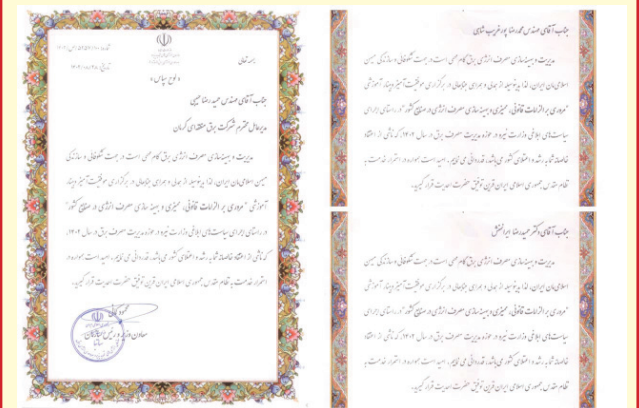 بسمه تعالی
«لوح سپاس»
جناب آقای مهندس حمیدرضا حبیبی
مدیرعامل محترم شرکت برق منطقه‌ای کرمان
مدیریت و بهینه‌سازی مصرف انرژی برق گام مهمی است در جهت شکوفایی و سازندگی
میهن اسلامی‌مان ایران، لذا بدینوسیله از همدلی و همراهی جنابعالی در برگزاری موفقیت آمیز وبینار
آموزشی "مروری بر الزامات قانونی، ممیزی و بهینه سازی مصرف انرژی در صنایع کشور"
در راستای اجرای سیاست‌های ابلاغی وزارت نیرو در حوزه مدیریت مصرف برق در سال ۱۴۰۲،
که ناشی از اعتقاد خالصانه شما به رشد و اعتلای کشور می‌باشد، قدردانی می‌نمایم. امید است همواره در
استمرار خدمت به نظام مقدس جمهوری اسلامی ایران قرین توفیق حضرت احدیت قرار گیرید.
معاون وزیر و رئیس سازمان
جناب آقای مهندس محمدرضا پورغریب شاهی
مدیریت و بهینه سازی مصرف انرژی برق گام مهمی است در جهت شکوفایی و سازندگی میهن
اسلامی‌مان ایران، لذا بدینوسیله از همدلی و همراهی جنابعالی در برگزاری موفقیت آمیز وبینار آموزشی
"مروری بر الزامات قانونی، ممیزی و بهینه سازی مصرف انرژی در صنایع کشور" در راستای اجرای
سیاست‌های ابلاغی وزارت نیرو در حوزه مدیریت مصرف برق در سال ۱۴۰۲، که ناشی از اعتقاد
خالصانه شما به رشد و اعتلای کشور می‌باشد، قدردانی می‌نمایم. امید است همواره در استمرار خدمت به
نظام مقدس جمهوری اسلامی ایران قرین توفیق حضرت احدیت قرار گیرید.
جناب آقای دکتر حمیدرضا ایرانمنش
مدیریت و بهینه سازی مصرف انرژی برق گام مهمی است در جهت شکوفایی و سازندگی میهن
اسلامی‌مان ایران، لذا بدینوسیله از همدلی و همراهی جنابعالی در برگزاری موفقیت آمیز وبینار آموزشی
"مروری بر الزامات قانونی، ممیزی و بهینه سازی مصرف انرژی در صنایع کشور" در راستای اجرای
سیاست‌های ابلاغی وزارت نیرو در حوزه مدیریت مصرف برق در سال ۱۴۰۲، که ناشی از اعتقاد
خالصانه شما به رشد و اعتلای کشور می‌باشد، قدردانی می‌نمایم. امید است همواره در استمرار خدمت به
نظام مقدس جمهوری اسلامی ایران قرین توفیق حضرت احدیت قرار گیرید.